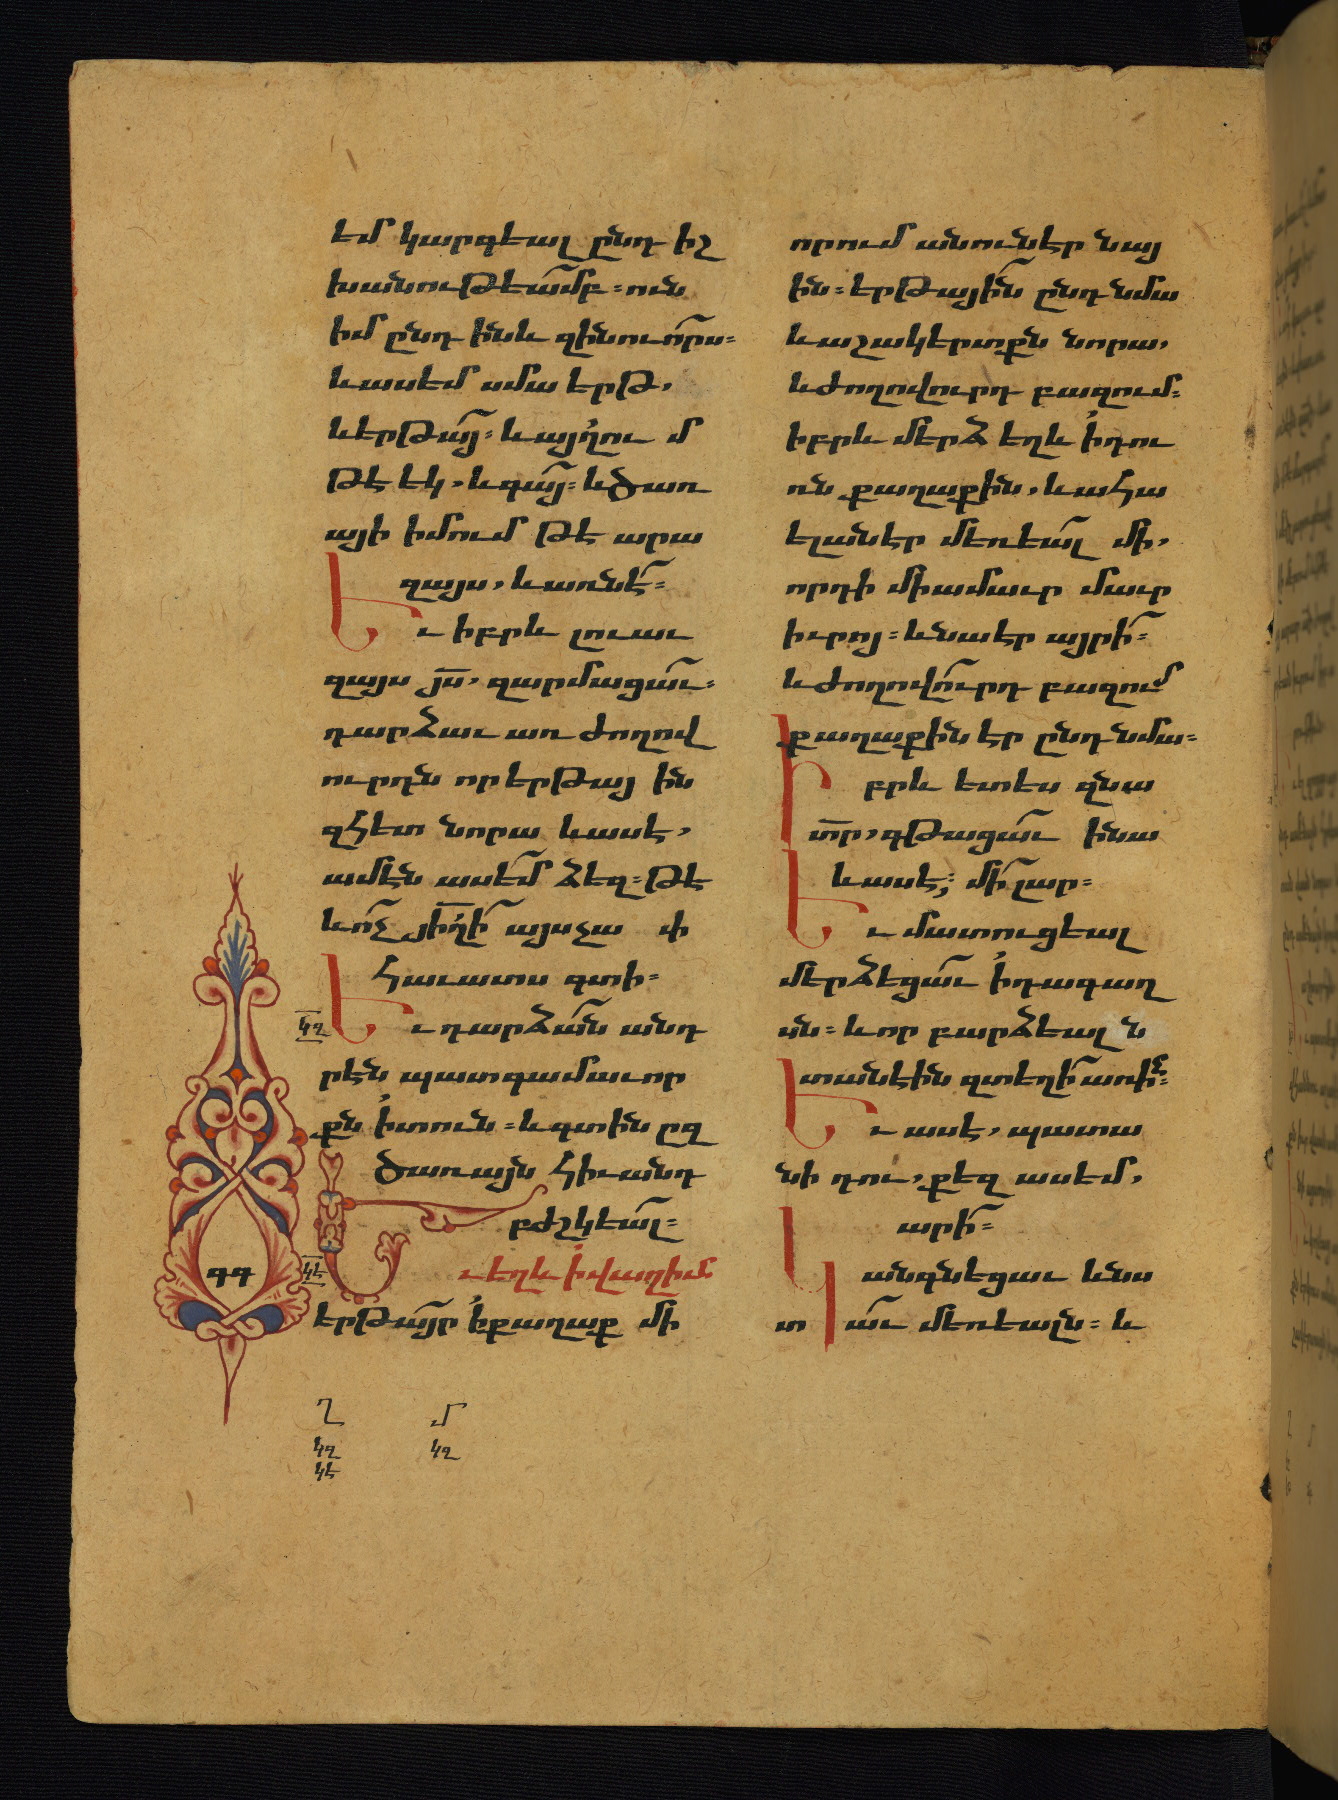 եմ կարգեալ ընդ իշ
խանութեամբ։ ուն
իմ ընդ ինև զինուորս։
և ասեմ սմա երթ,
և երթայ։ և այլում
թէ եկ, և գայ։ և ծառ
այի իմում թէ արա
զայս, և առնէ։
Եւ իբրև լուաւ
զայս յս, զարմացաւ։
դարձաւ առ ժողով
ուրդն որ երթայ ին
զհետ նորա և ասէ,
ամէն ասեմ ձեզ։ թէ
և ոչ յիղի այսչափ
հաւատս գտի։
կզ
Եւ դարձան անդ
րէն պատգամաւոր
քն ի տուն։ և գտին ըզ
ծառայն հիւանդ
բժշկեալ։
գգ
կէ
Եւ եղև ի վաղիւն
երթայր ի քաղաք մի
Ղ մ
կզ կզ
կէ
որում անուն էր նայ
ին։ երթային ընդ նմա
և աշակերտքն նորա,
և ժողովուրդ բազում։
իբրև մերձ եղև ի դու
ռն քաղաքին, և ահա
ելանէր մեռեալ մի,
որդի միամաւր մաւր
իւրոյ։ և նա էր այրի։
և ժողովուրդ բազում
քաղաքին էր ընդ նմա։
Իբրև ետես զնա
տր, գթացաւ ի նա
և ասէ; մի լար։
Եւ մատուցեալ
մերձեցաւ ի դագաղ
սն։ և որ բարձեալն
տանէին զտեղի առին։
Եւ ասէ, պատա
նի դու, քեզ ասեմ,
արի։
Եւ անգնեցաւ և նս
տաւ մեռեալն։ և